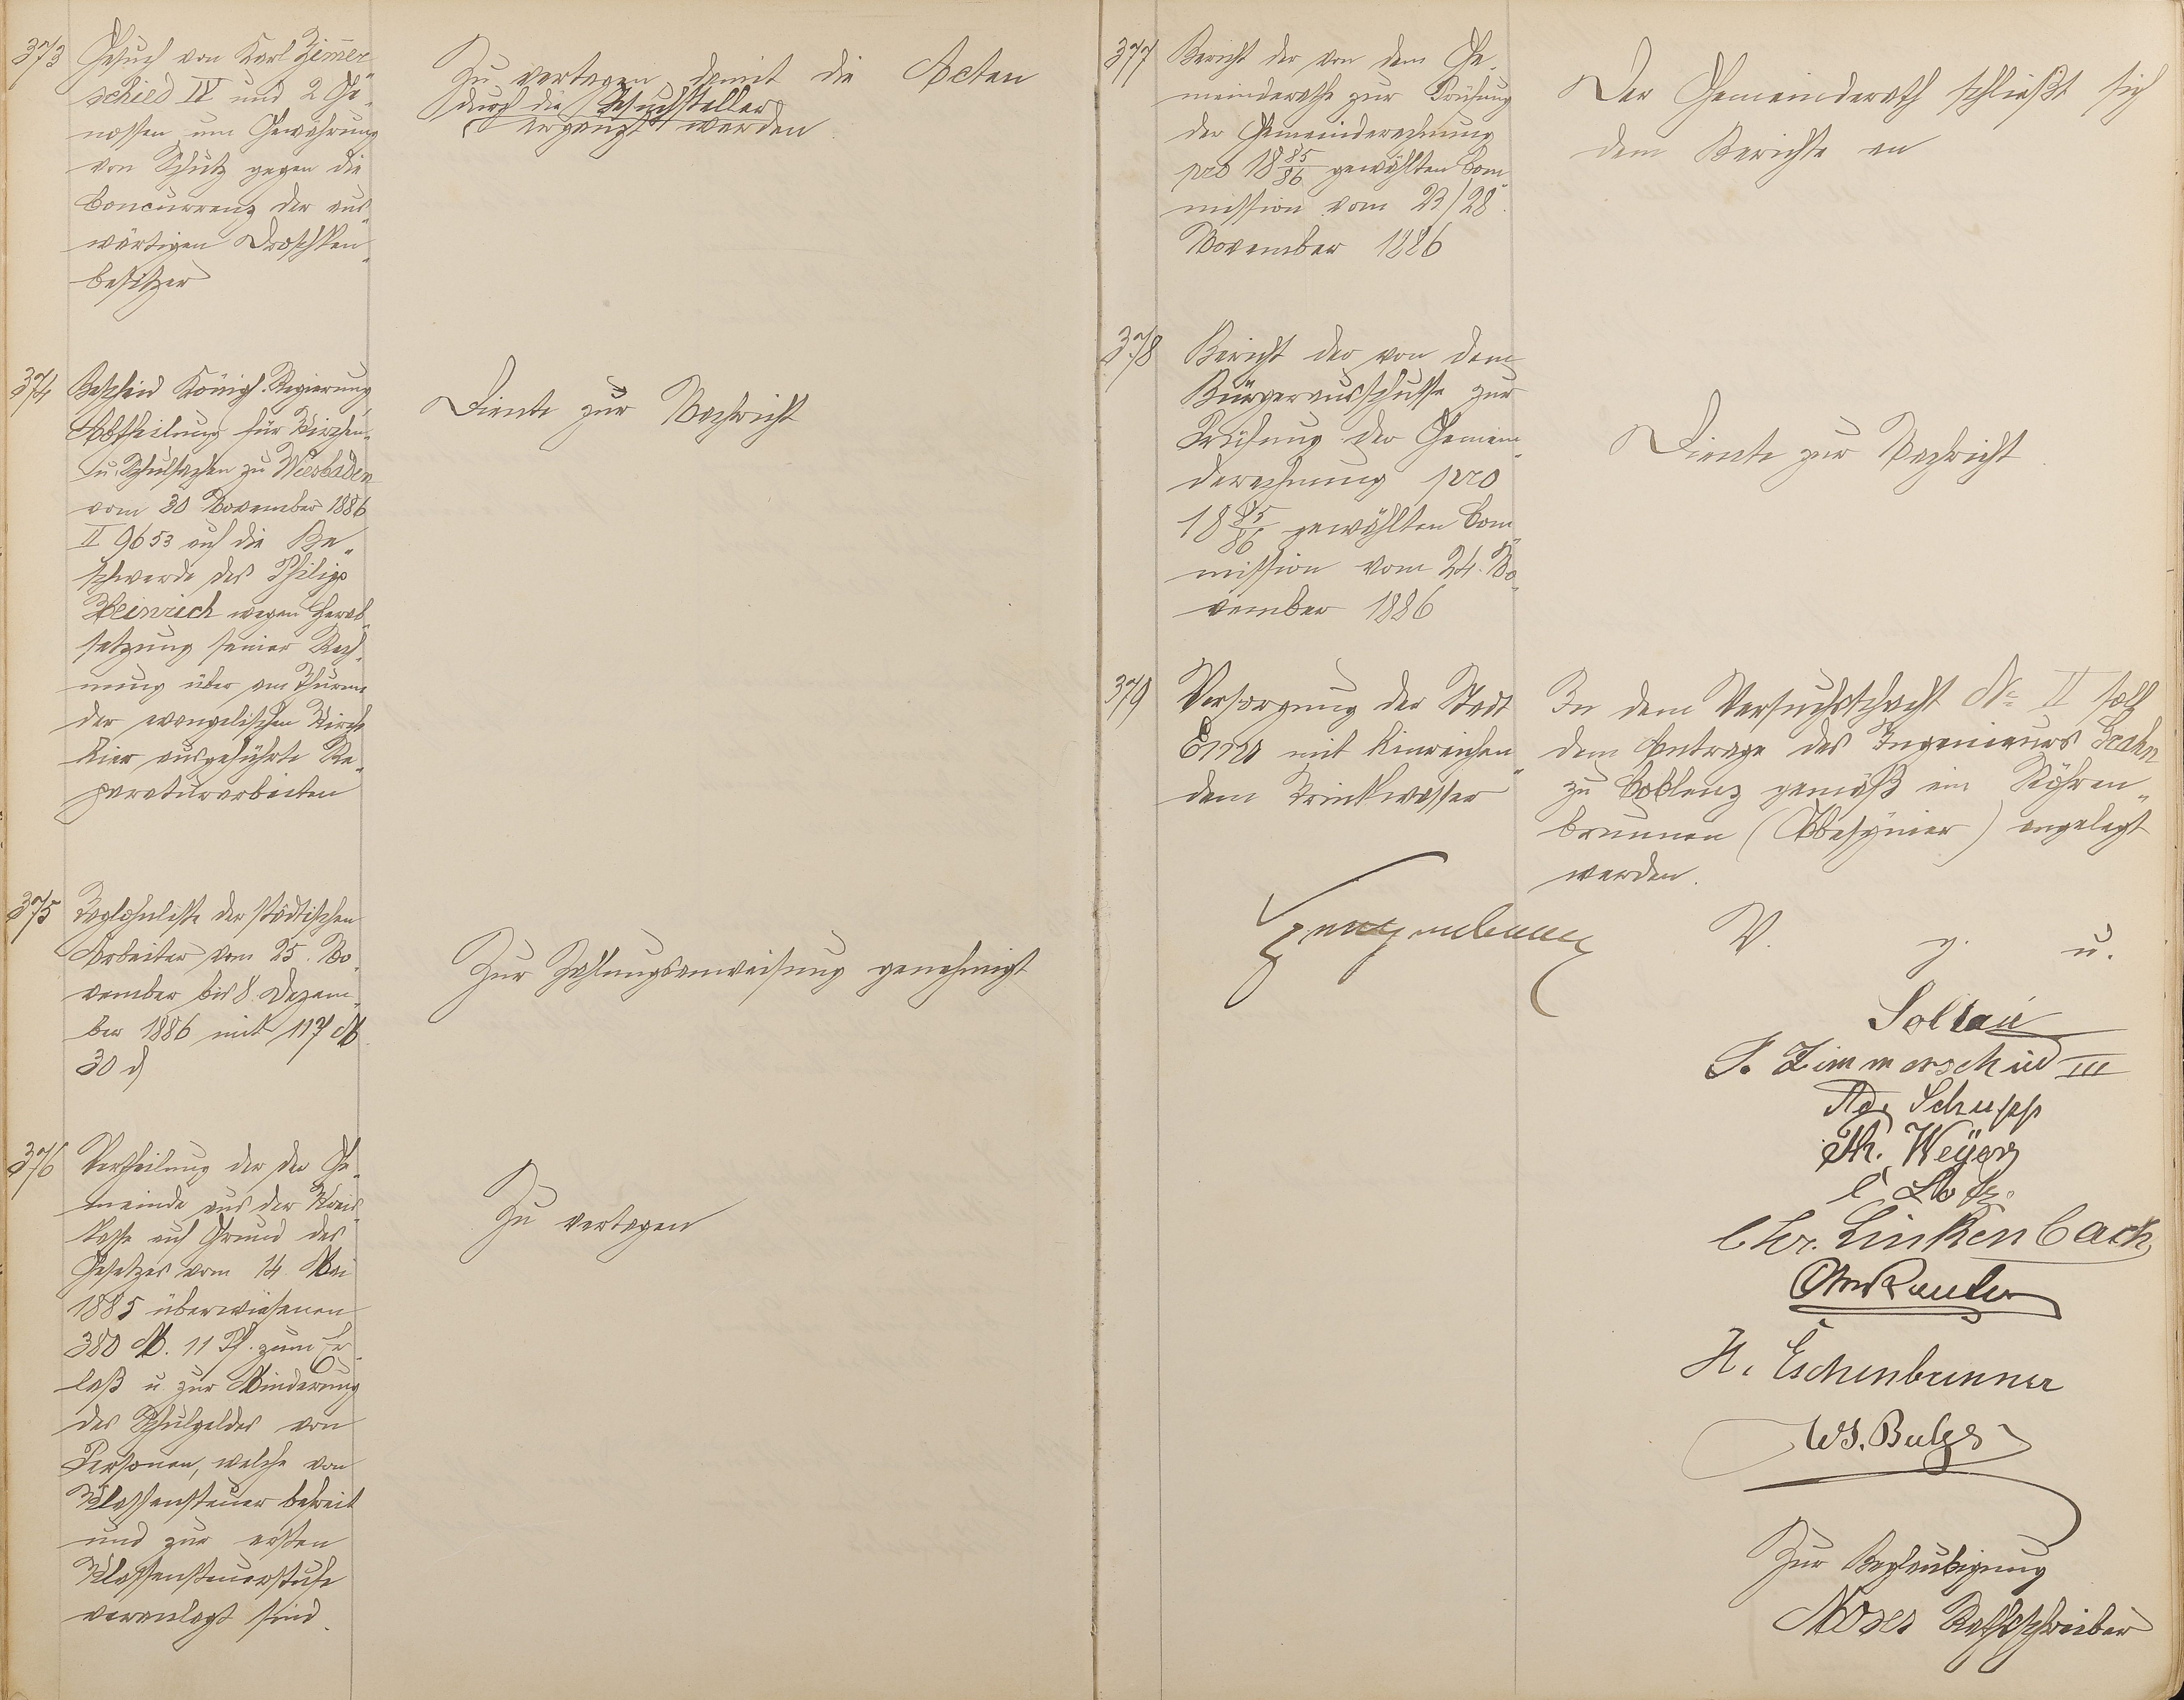 373
Gesuch von Karl Zimmer„
schied IV und 2 Ge„
nossen um Gewährung
von Schutz gegen die
Concurrenz der aus„
wärtigen Droschken„
besitzer
Zu vertagen damit die Acten
durch die Gesuchsteller
ergänzt werden
374
Bescheid Königl. Regierung,
Abtheilung für Kirchen-
u. Schulsachen zu Wiesbaden
vom 30 November 1886
II 9653 auf die Be„
schwerde des Philipp
Heinrich wegen Herab„
setzung seiner Rech„
nung über am Thurme
der evangelischen Kirche
hier ausgeführte Re„
paraturarbeiten
Diente zur Nachricht
375
Taglohnliste der städtischen
Arbeiter vom 25. No„
vember bis 8. Dezem„
ber 1886 mit 117 M
30 d
Zur Zahlungsanweisung genehmigt
376
Vertheilung der der Ge„
meinde aus der Kreis„
kasse auf Grund des
Gesetzes vom 14. Mai
1885 überwiesenen
380 M. 11 Pf. zum Er„
laß u. zur Minderung
des Schulgeldes von
Personen, welche von
Klassensteuer befreit
und zur ersten
Klassensteuerstufe
veranlagt sind.
Zu vertagen
377
Bericht der von dem Ge„
meinderathe zur Prüfung
der Gemeinderechnung
pro 18 85/86 gewählten Com„
mission vom 23/28.
November 1886
Der Gemeinderath schließt sich
dem Berichte an
378
Bericht der von dem
Bürgerausschusse zur
Prüfung der Gemein„
derechnung pro
18 85/86 gewählten Com„
mission vom 24. No„
vember 1886
Diente zur Nachricht
379
Versorgung der Stadt
Ems mit hinreichen„
dem Trinkwasser
In dem Versuchsschacht No II soll
dem Antrage des Ingenieurs
zu Coblenz gemäß ein Röhren„
brunnen (Abessynier) angelegt
werden.
V. g. u.
Soltau
P. Zimmerschied III
Ag. Schupp
Ph. Weyer
Chr. Linkenbach
H. Eschenbrenner
Zur Beglaubigung
Moses Rathsschreiber